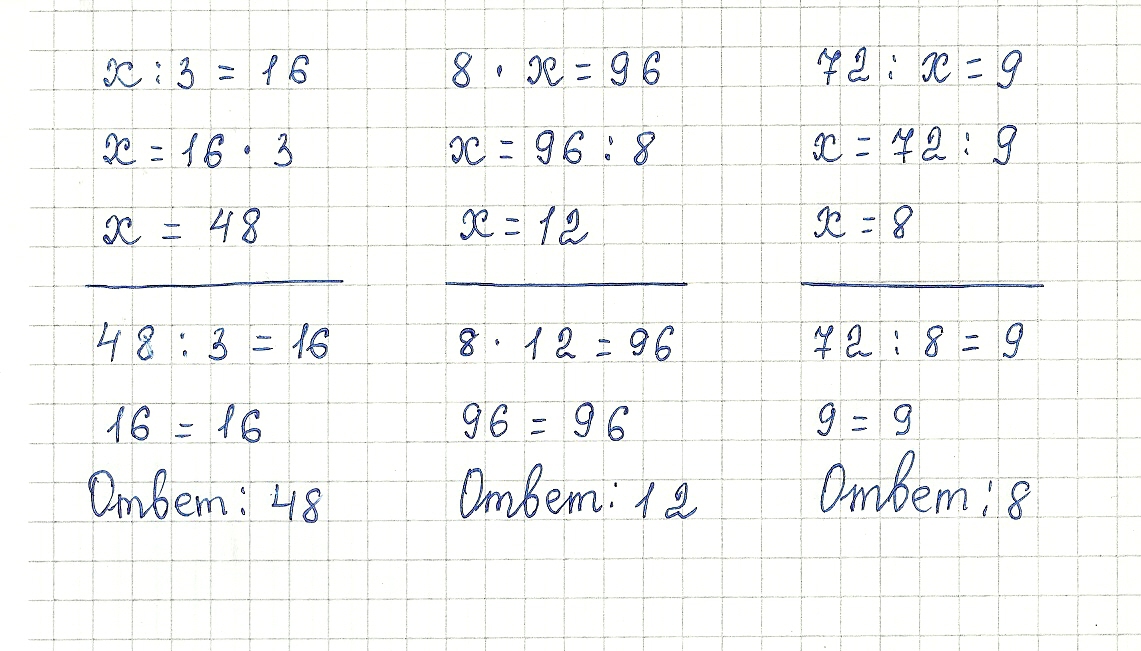 x : 3 = 16
x = 16 · 3
x = 48
48 : 3 = 16
16 = 16
Ответ: 48
8 · x = 96
x = 96 : 8
x = 12
8 · 12 = 96
96 = 96
Ответ: 12
72 : x = 9
x = 72 : 9
x = 8
72 : 8 = 9
9 = 9
Ответ: 8